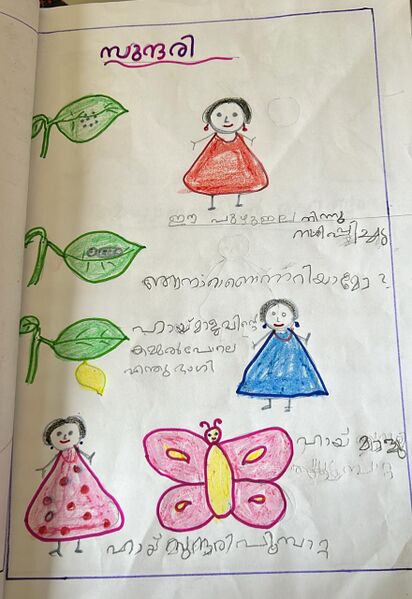 സുന്ദരി
ഈ പുഴു ഇല തിന്നു
നശിപ്പിച്ചു
ഞാനാരാണെന്നറിയാമോ ?
ഹായ് മാളുവിന്റെ
കമ്മൽപോലെ
എന്തു ഭംഗി
ഹായ് മാളു
ഹായ് സുന്ദരി പൂമ്പാറ്റ